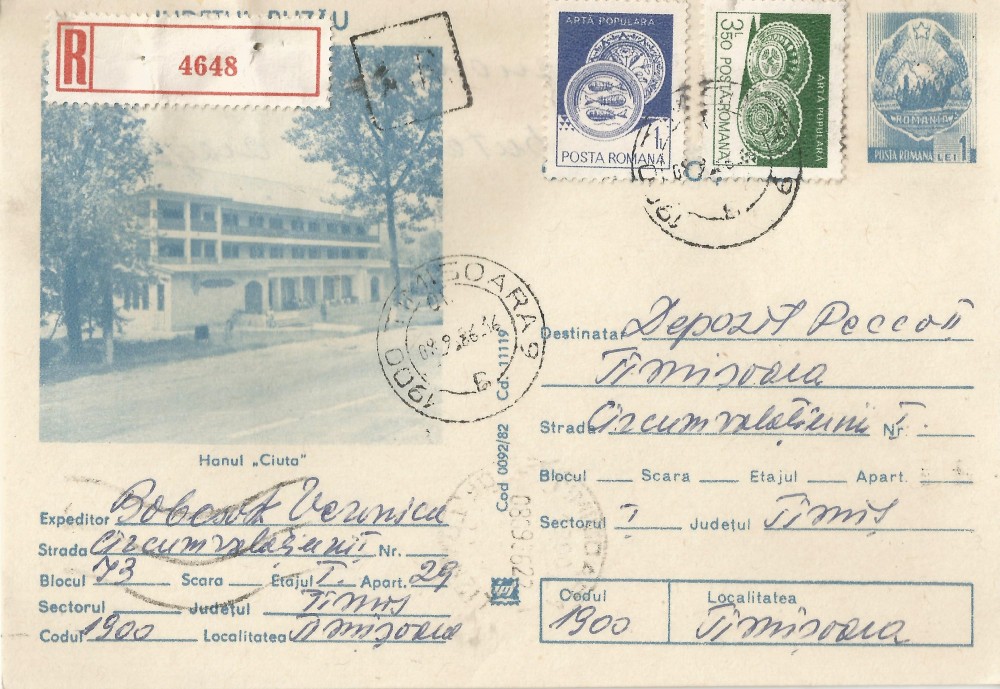 JUDEȚUL BUZĂU
R 4648
ARTĂ POPULARĂ
1L
POSTA ROMANA
3L 50 POSTA ROMANA
ARTĂ POPULARĂ
ROMANIA
POSTA ROMANA LEI 1
1900 TIMISOARA 9
08.9.86.16
Hanul „Ciuta”
Cod 0092/82 Cd. 11119
Expeditor Bobesok Veronica
Strada Circumvalațiunii Nr.
Blocul 73 Scara Etajul I. Apart. 29
Sectorul Județul Timiș
Codul 1900 Localitatea Timișoara
Destinatar Depozit Peco II
Timișoara
Strada Circumvalațiunii I Nr.
Blocul Scara Etajul Apart.
Sectorul I Județul Timiș
Codul Localitatea
1900 Timișoara